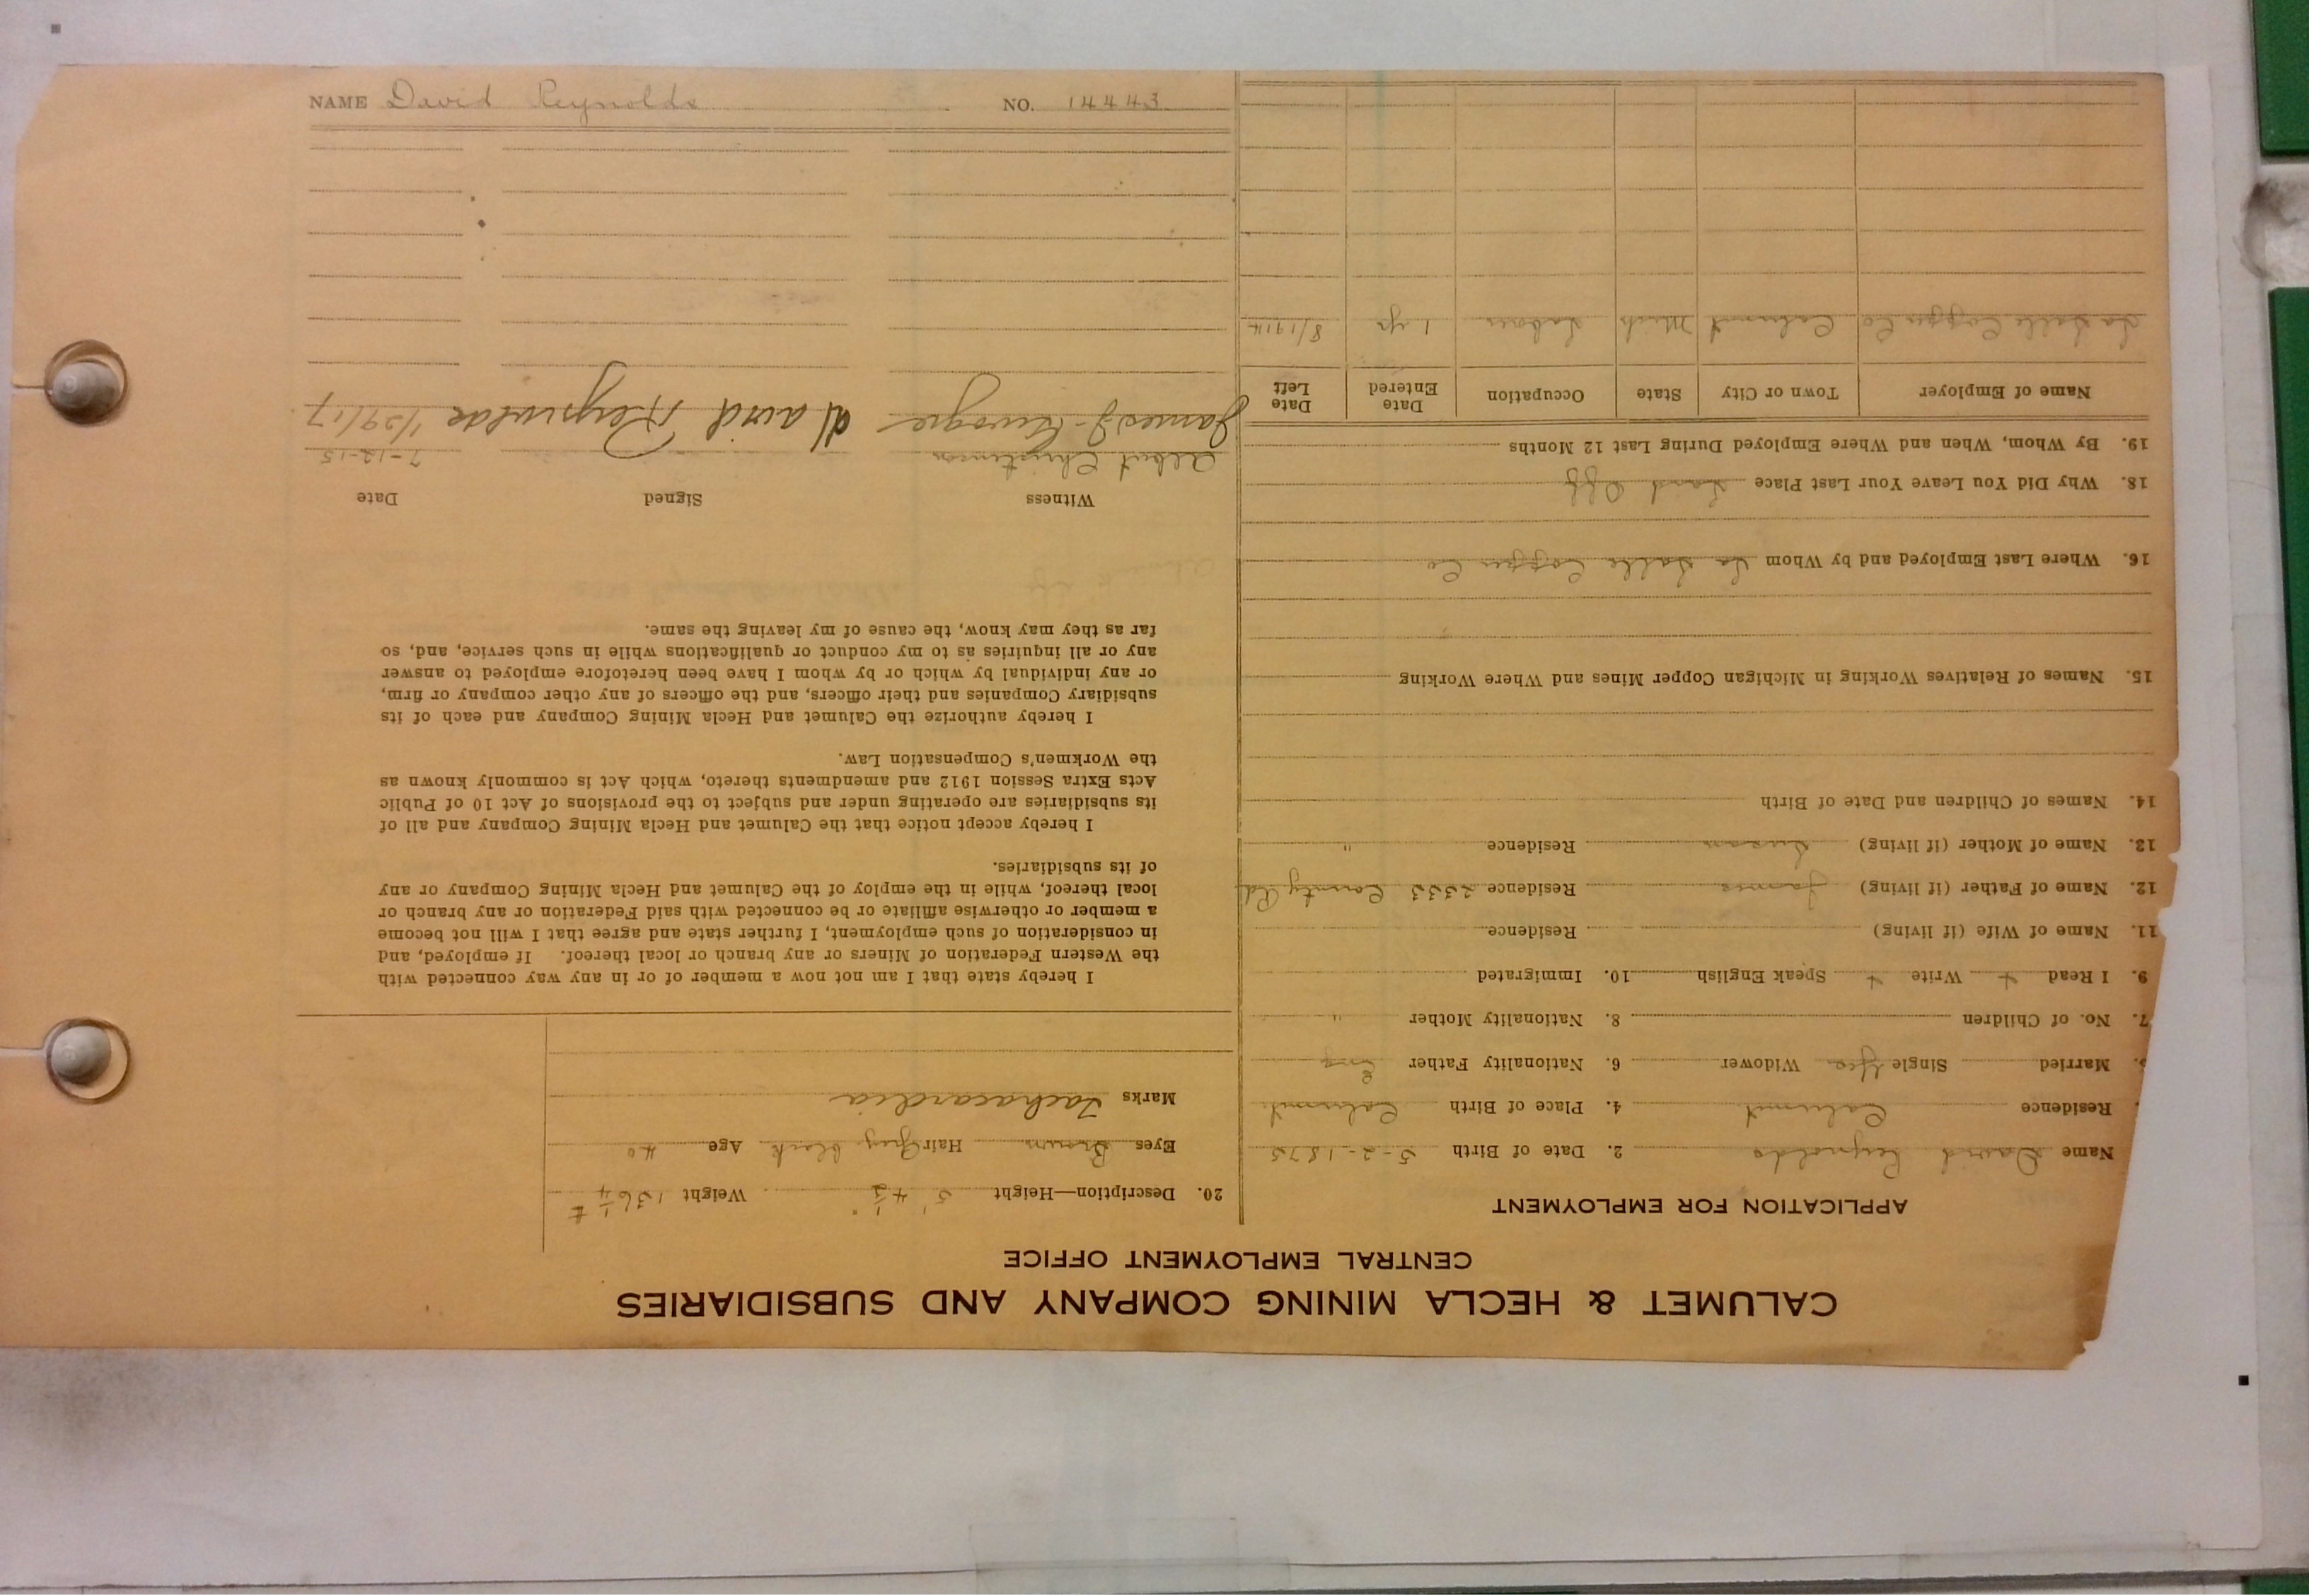 CALUMET & HECLA MINING COMPANY AND SUBSIDIARIES
CENTRAL EMPLOYMENT OFFICE
APPLICATION FOR EMPLOYMENT
Name David Reynolds 2. Date of Birth 5-2-1875
Residence Calumet 4. Place of Birth Calumet
5. Married Single Yes Widower 6. Nationality Father Eng
7. No. of Children 8. Nationality Mother "
9. I Read + Write + Speak English 10. Immigrated
11. Name of Wife (if living) Residence
12. Name of Father (if living) James Residence 2333 County Rd
13. Name of Mother (if living) Susan Residence "
14. Names of Children and Date of Birth
15. Names of Relatives Working in Michigan Copper Mines and Where Working
16. Where Last Employed and by Whom La Salle Copper Co
18. Why Did You Leave Your Last Place Laid Off
19. By Whom, When and Where Employed During Last 12 Months
Name of Employer Town or City State Occupation Date Entered Date Left
La Salle Copper Co Calumet Mich Labor 1 yr 8/1914
20. Description—Height 5' 4 1/2" Weight 136 1/4 #
Eyes Brown Hair Grey Black Age 40
Marks Tachacardia
I hereby state that I am not now a member of or in any way connected with
the Western Federation of Miners or any branch or local thereof. If employed, and
in consideration of such employment, I further state and agree that I will not become
a member or otherwise affiliate or be connected with said Federation or any branch or
local thereof, while in the employ of the Calumet and Hecla Mining Company or any
of its subsidiaries.
I hereby accept notice that the Calumet and Hecla Mining Company and all of
its subsidiaries are operating under and subject to the provisions of Act 10 of Public
Acts Extra Session 1912 and amendments thereto, which Act is commonly known as
the Workmen's Compensation Law.
I hereby authorize the Calumet and Hecla Mining Company and each of its
subsidiary Companies and their officers, and the officers of any other company or firm,
or any individual by which or by whom I have been heretofore employed to answer
any or all inquiries as to my conduct or qualifications while in such service, and, so
far as they may know, the cause of my leaving the same.
Witness Signed Date
Albert Christenson 7-12-15
James J. David Reynolds 1/29/17
NAME David Reynolds NO. 14443